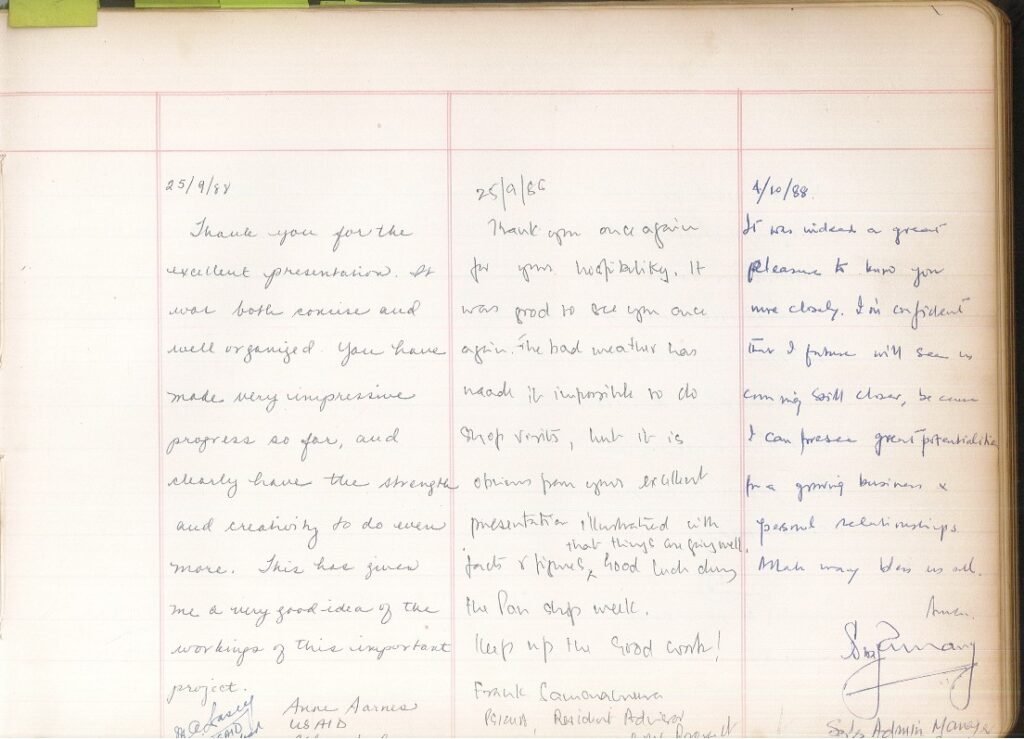 25/9/88
Thank you for the
excellent presentation. It
was both concise and
well organized. You have
made very impressive
progress so far, and
clearly have the strength
and creativity to do even
more. This has given
me a very good idea of the
workings of this important
project.
Anne Aarnes
USAID
25/9/86
Thank you once again
for your hospitality. It
was good to see you once
again. The bad weather has
made it impossible to do
shop visits, but it is
obvious from your excellent
presentation illustrated with
that things are going well.
facts & figures, Good luck during
the Pan shop week.
Keep up the Good work!
Frank
Resident Advisor
4/10/88.
It was indeed a great
pleasure to know you
more closely. I'm confident
that I future will see us
coming still closer, because
I can foresee great potentialities
for a growing business &
personal relationships.
Allah may bless us all.
Amen.
Sales Admin Manager